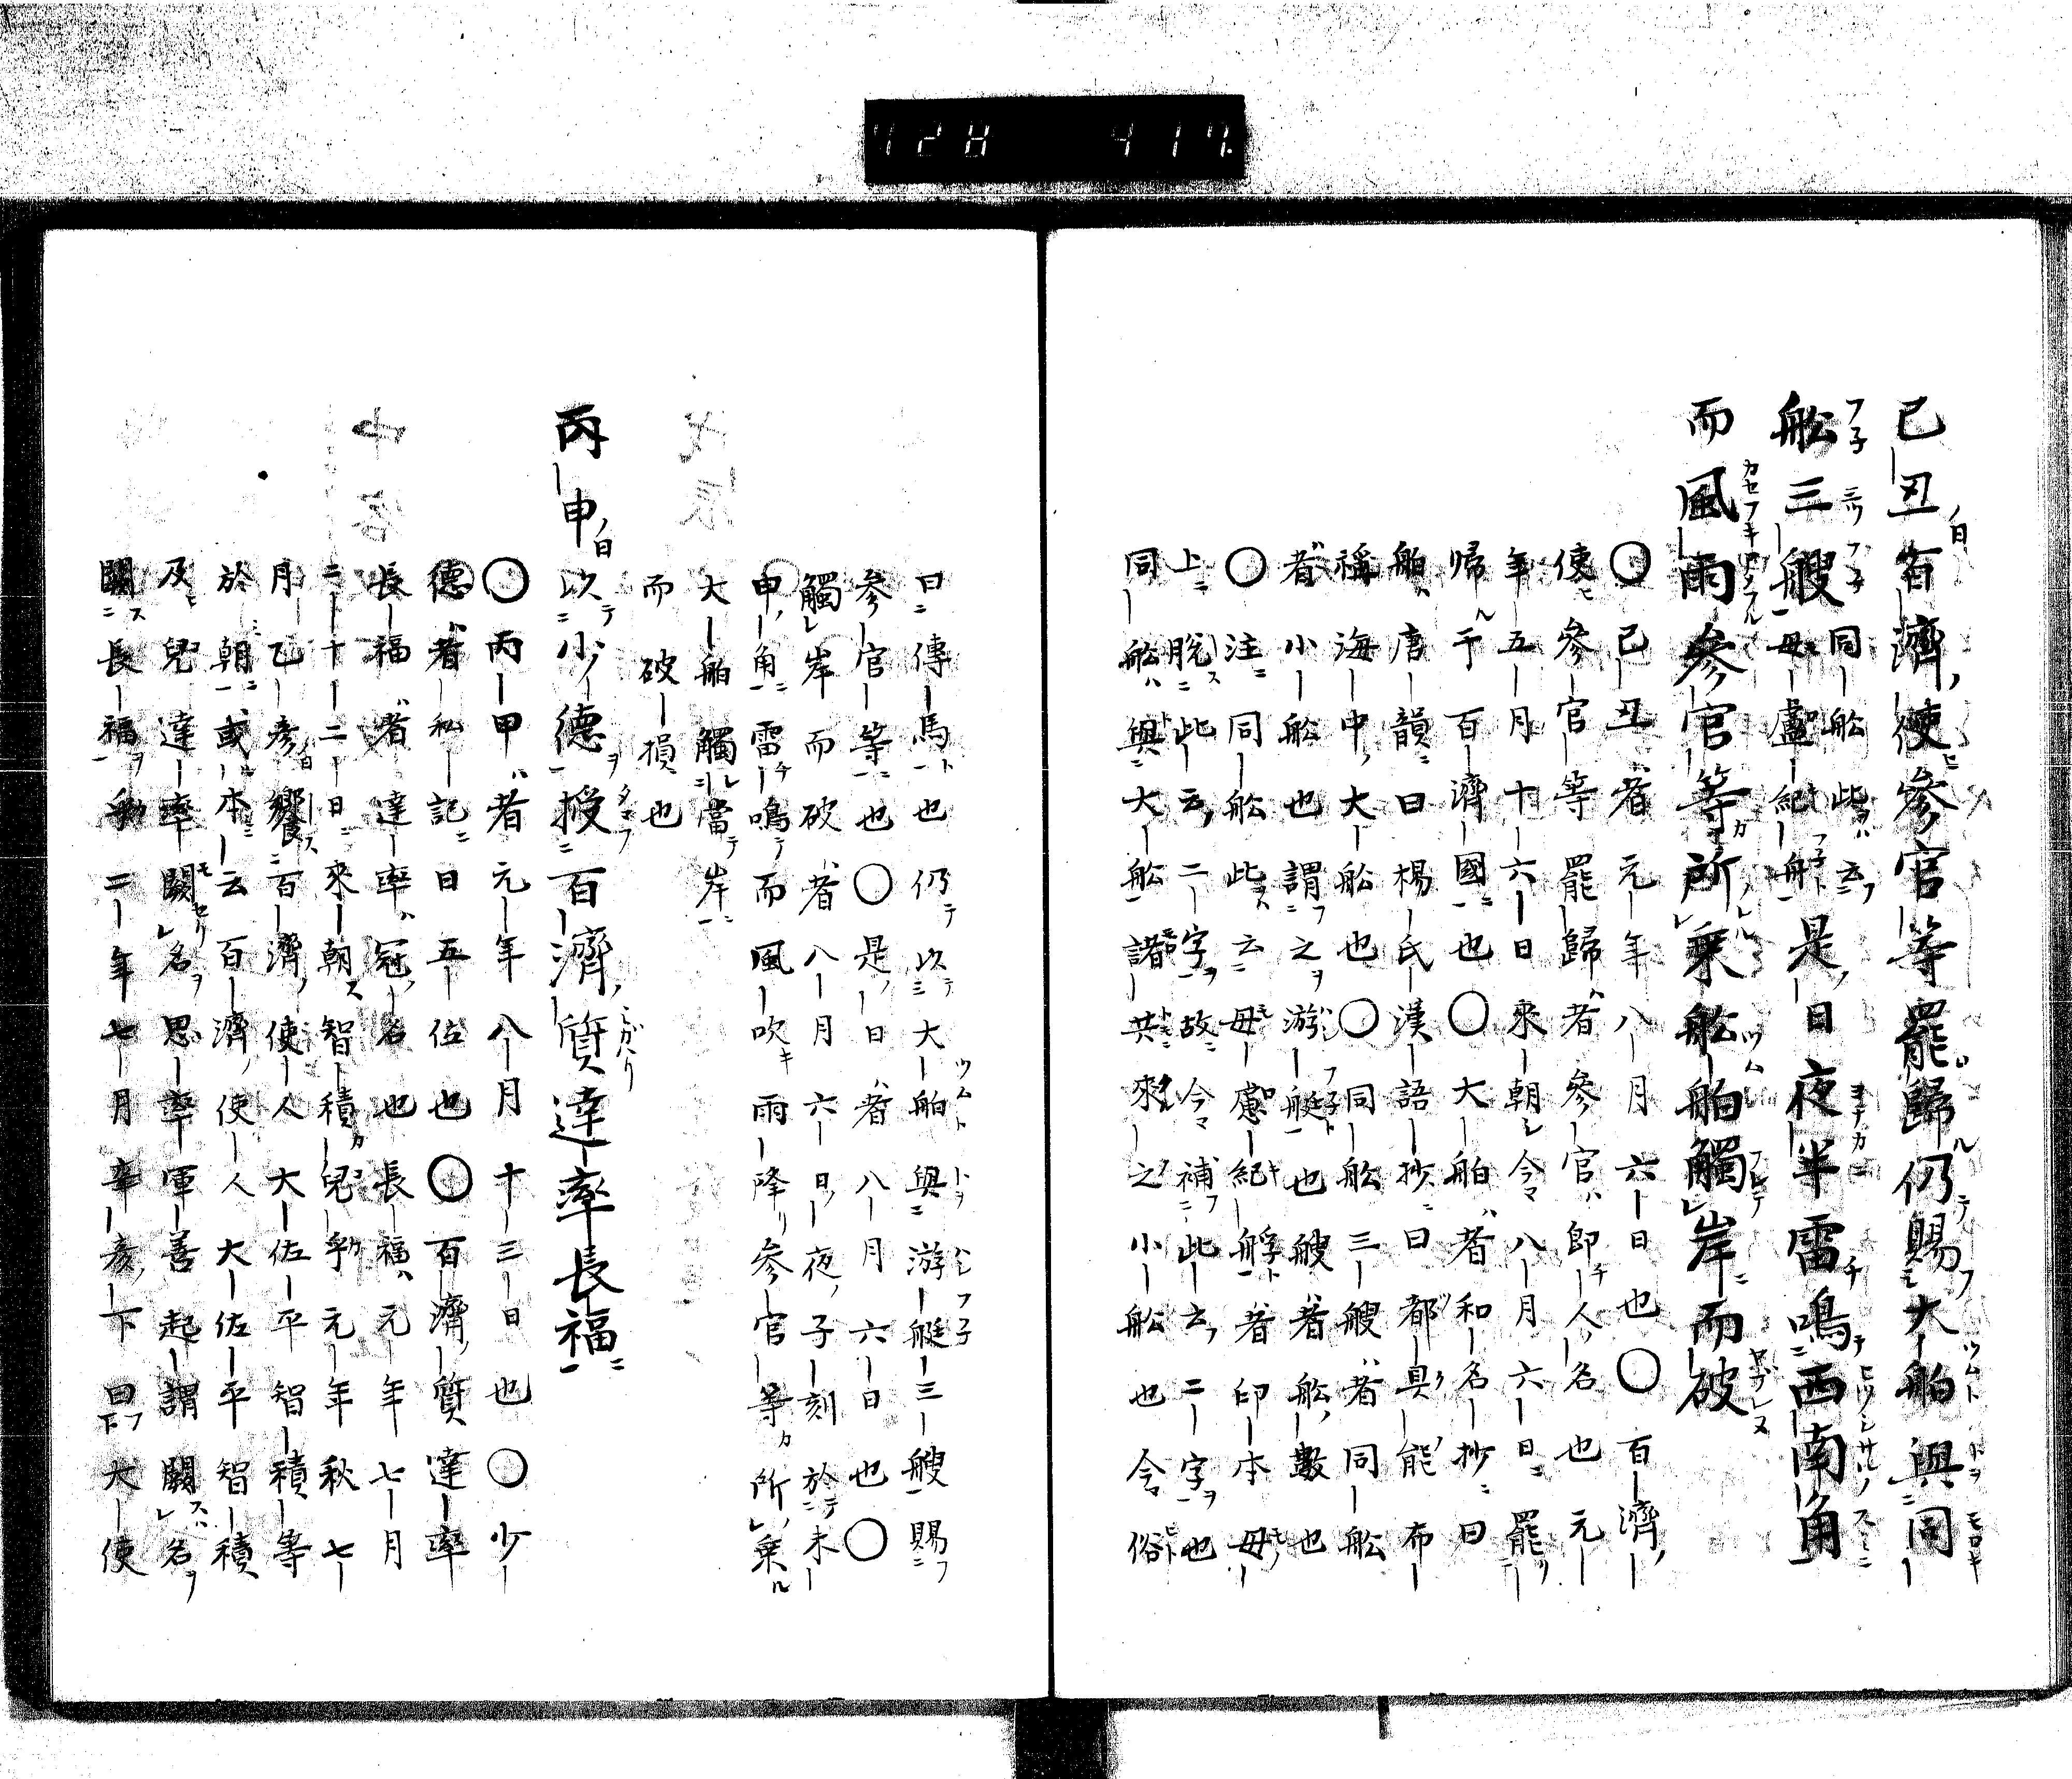 己丑百濟使參官等罷歸仍賜大舶與同
舩三艘 同舩此云母盧紀舩 是日夜半雷鳴西南角
而風雨參官等所乗舩舶觸岸而破
○己丑者元年八月六日也○百濟
使參官等罷歸者參官即人名也元
年五月十六日來朝今八月六日罷
帰于百濟國也○大舶者和名抄曰
舶唐韻曰楊氏漢語抄曰都具能布
稱海中大舩也○同舩三艘者同舩
者小舩也謂之游艇也艘者舩數也
○注同舩此云母慮紀艀者印本母
上脱此云二字故今補此云二字也
同舩與大舩諸共來之小舩也今俗
曰傳馬也仍以大舶與游艇三艘賜
參官等也○是日者八月六日也○
觸岸而破者八月六日夜子刻於未
申角雷鳴而風吹雨降參官等所乗
大舶觸當岸
而破損也
丙申以小德授百濟質達率長福
○丙甲者元年八月十三日也○少
德者私記曰五位也○百濟質達率
長福者達率冠名也長福元年七月
二十二日來朝智積兒乎元年秋七
月乙彥饗百濟使人大佐平智積等
於朝或本云百濟使人大佐平智積
及兒達率闕名恩率軍善起謂闕名
闕長福乎二年七月辛彥下曰大使
728 417